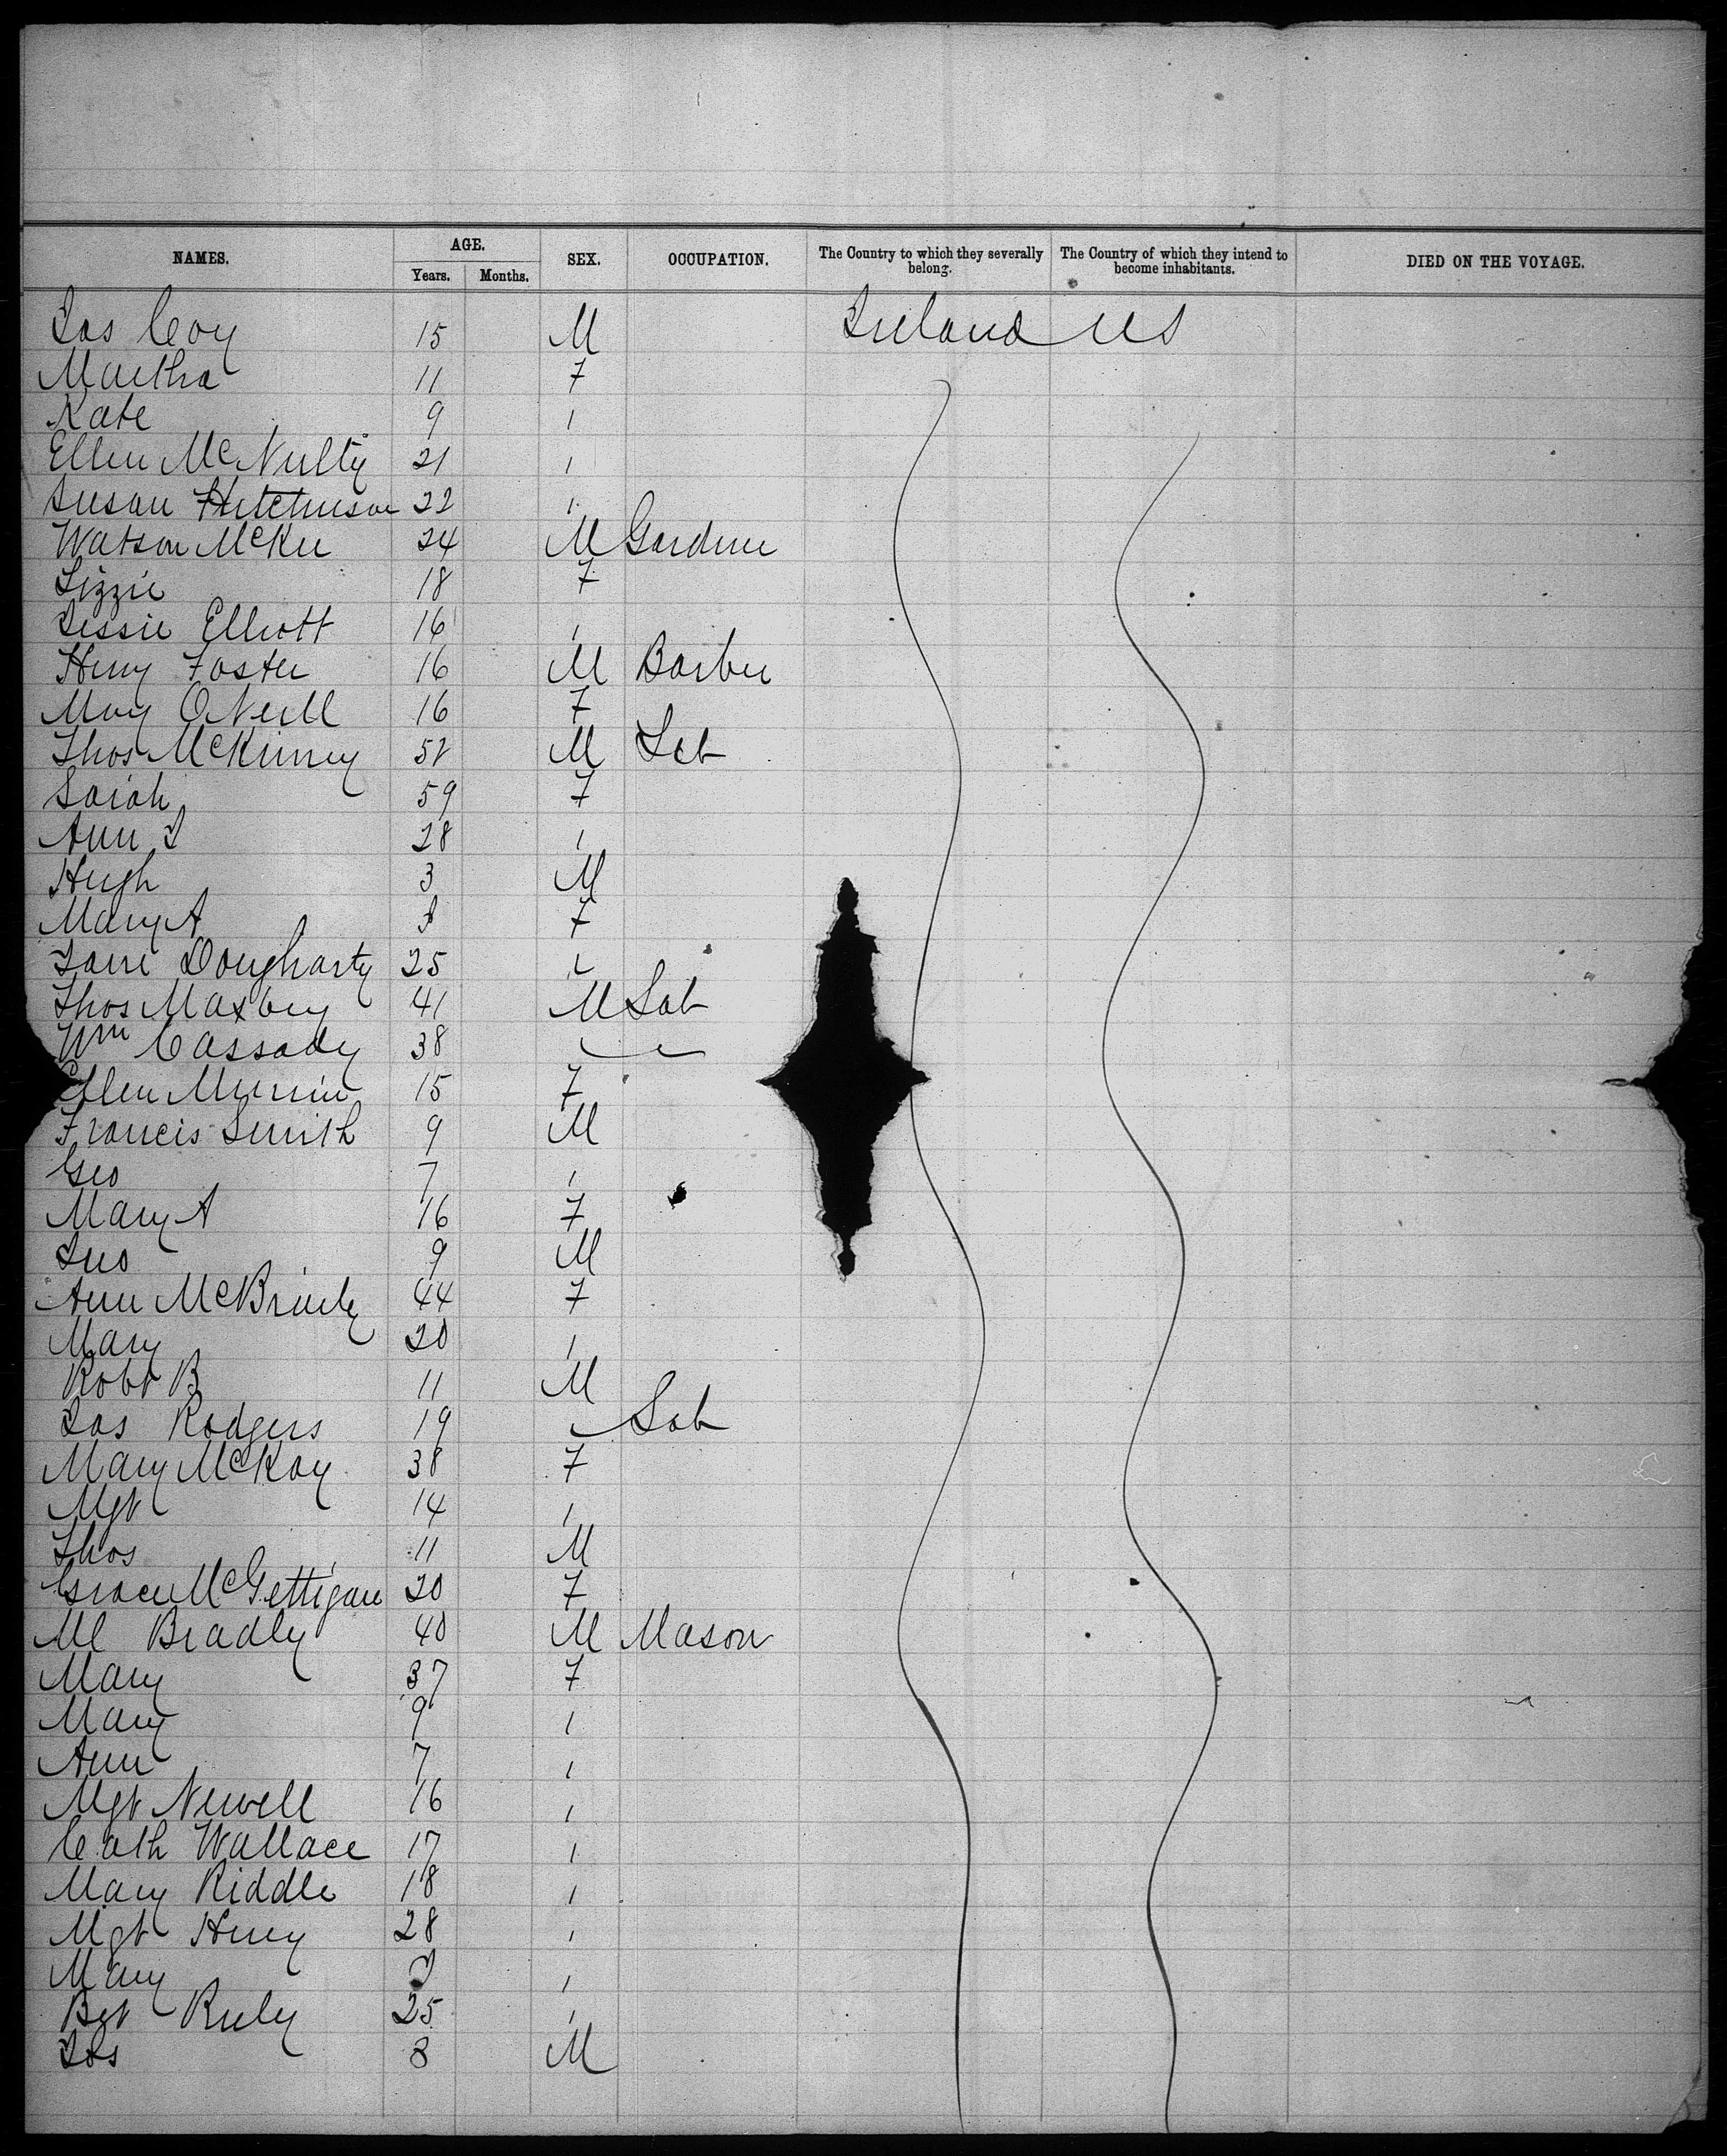 NAMES. AGE. SEX. OCCUPATION. The Country to which they severally belong. The Country of which they intend to become inhabitants. DIED ON THE VOYAGE.
Years. Months.
Jas Coy 15 M Ireland US
Martha 11 F
Kate 9 "
Ellen McNulty 21 "
Susan Hutchinson 22 "
Watson McKee 24 M Gardner
Lizzie 18 F
Jessie Elliott 16 "
Henry Foster 16 M Barber
May ONeill 16 F
Thos McKinney 52 M Lab
Sarah 59 F
Ann J 28 "
Hugh 3 M
Mary A F
Jane Dougharty 25 "
Thos Maxbery 41 M Lab
Wm Cassady 38 " "
Ellen Murrin 15 F
Francis Smith 9 M
Geo 7 "
Mary A 16 F
Jno 9 M
Ann McBrinly 44 F
Mary 20 "
Robt B 11 M
Jas Rodgers 19 " Lab
Mary McKoy 38 F
Mgt 14 "
Thos 11 M
Grace McGettigan 20 F
Ml Bradly 40 M Mason
Mary 37 F
Mary 9 "
Ann 7 "
Mgt Newell 16 "
Cath Wallace 17 "
Mary Riddle 18 "
Mgt Henry 28 "
Mary "
Bgt Riely 25 "
Jos 8 M